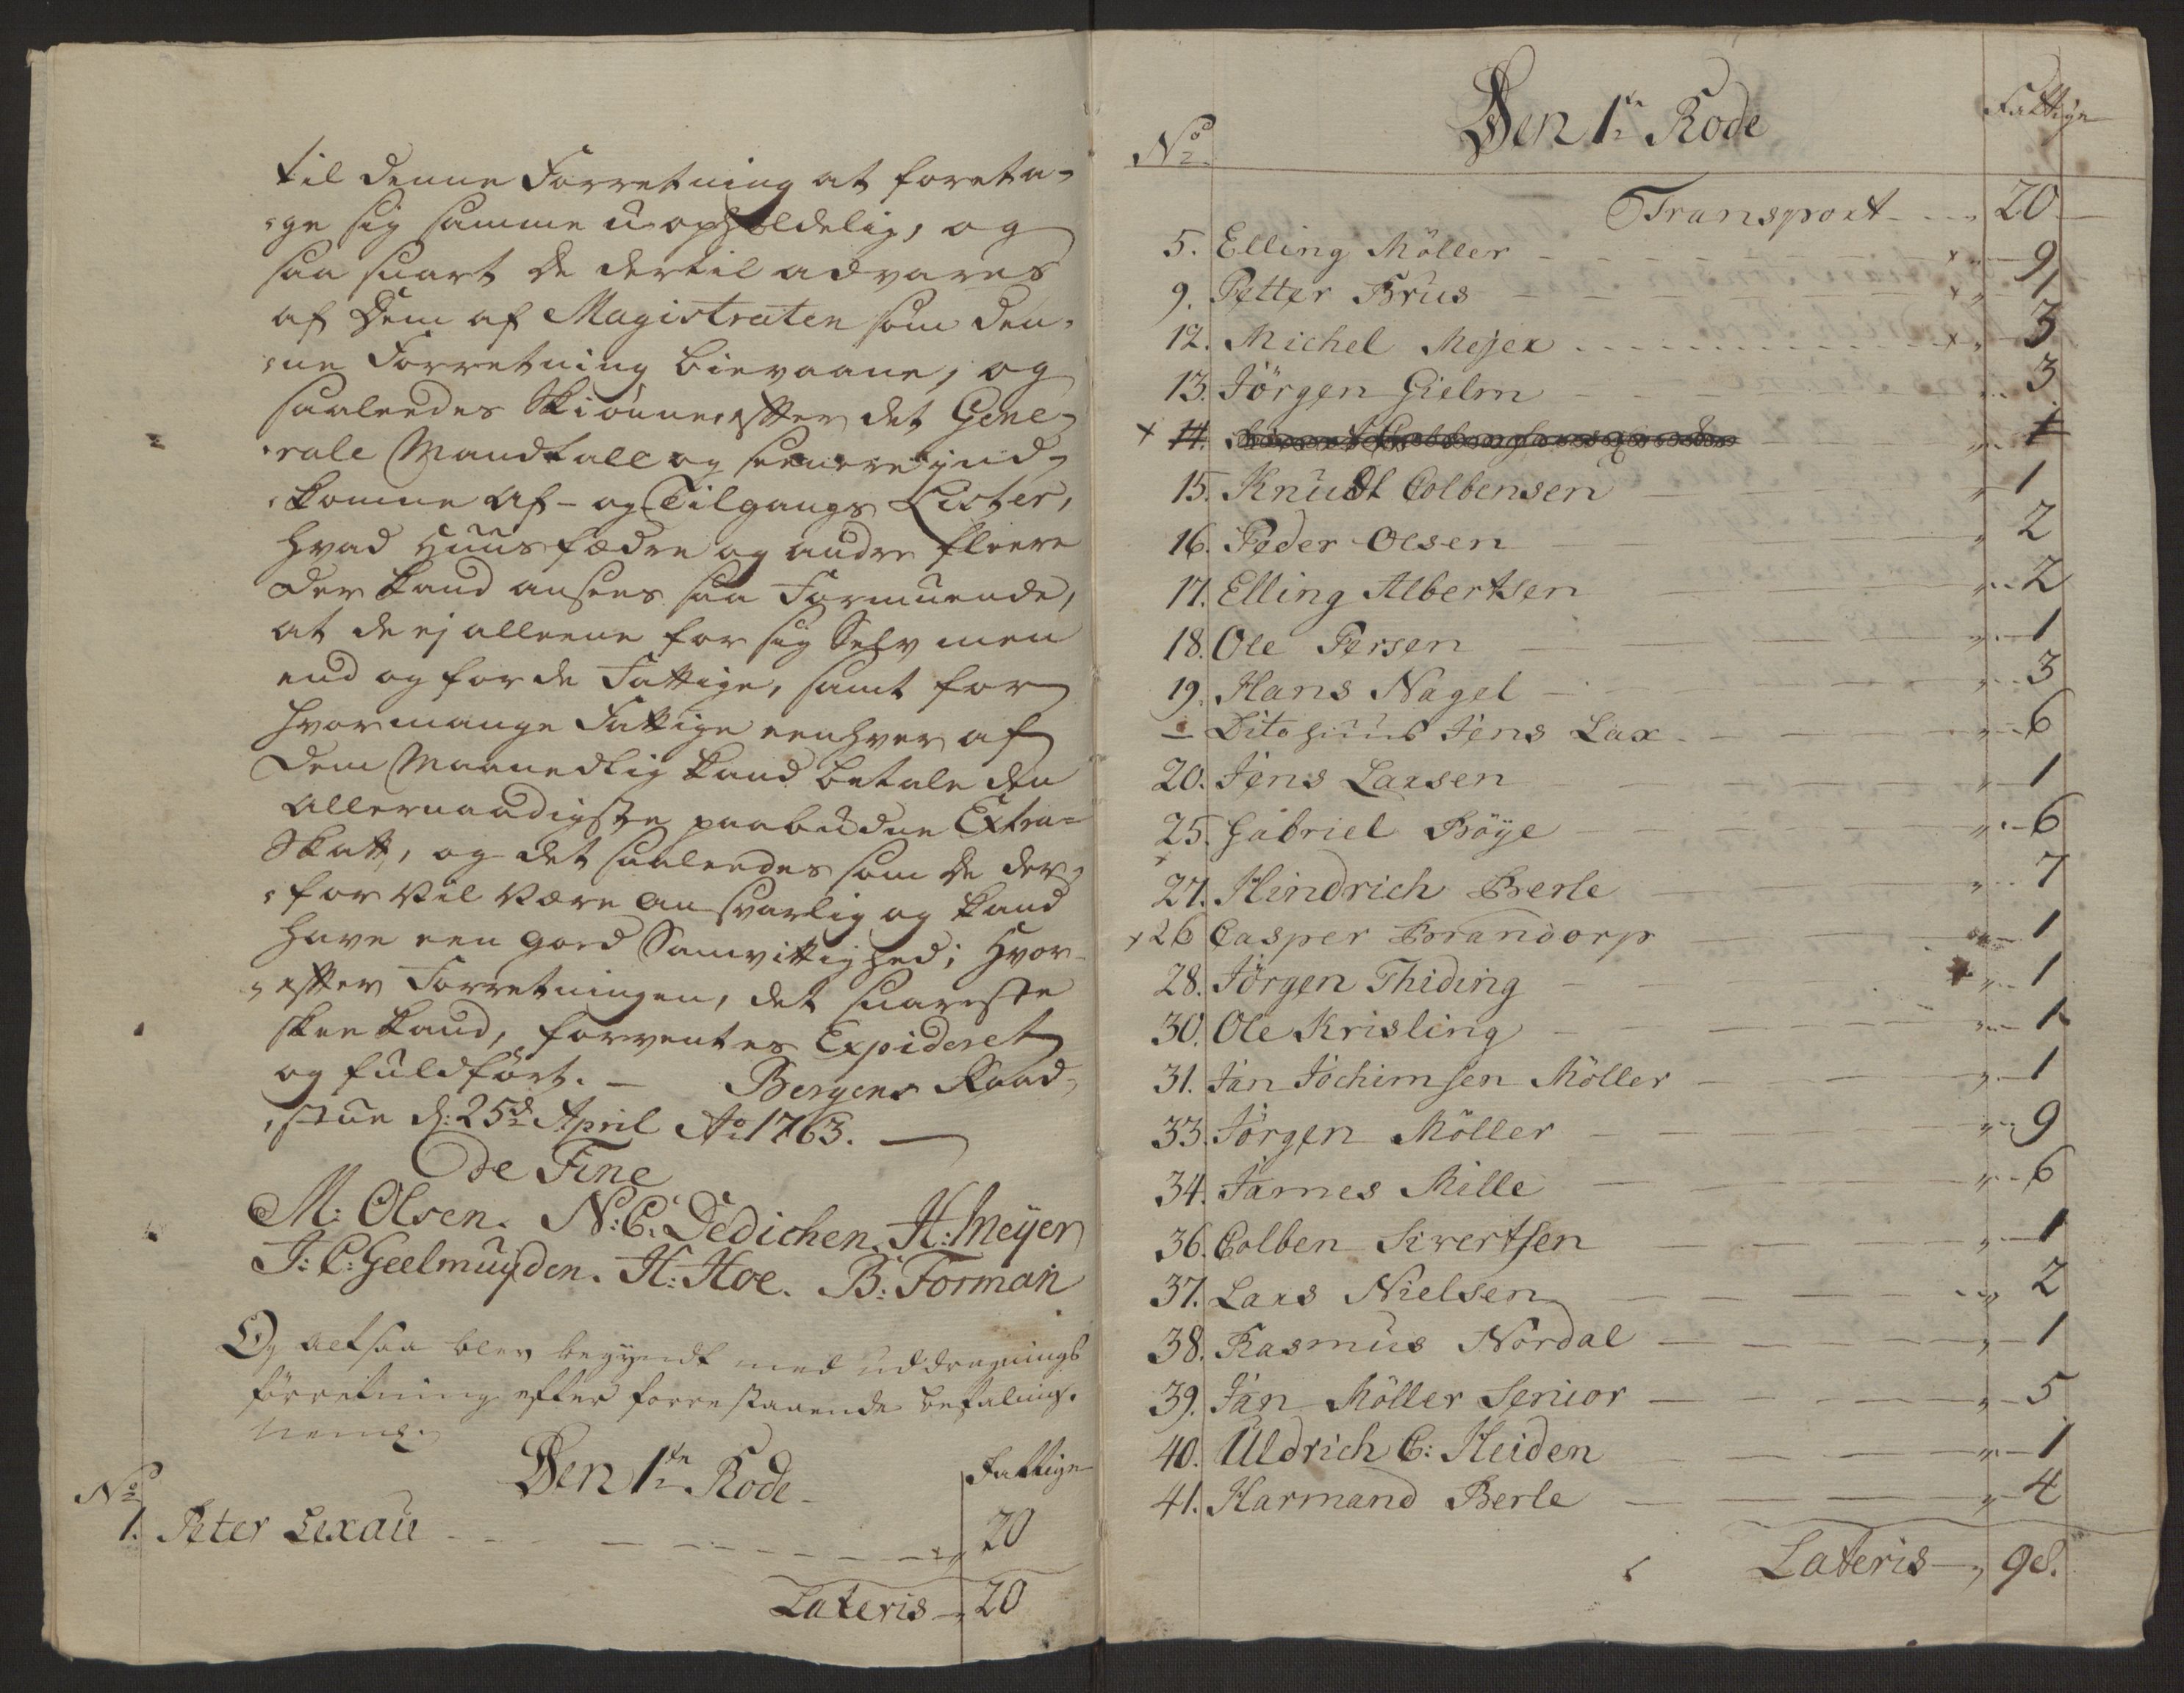 til denne Forretning at foreta-
ge sig samme uopholdelig, og
saa snart de dertil advares
af Dem af Magistraten som den-
ne Forretning bievaane, og
saaleedes Skiønne efter det Gene-
rale Mandtall og seenere ind-
komne Af- og Tilgangs Lister,
hvad Huusfædre og andre fleere
der kand ansees saa Formuende,
at de ej alleene for sig Selv men
end og for de Fattige, samt for
hvor mange Fattige eenhver af
Dem Maanedlig kand betale den
Allernaadigste paabudne Extra-
Skatt, og det saaleedes som De der-
for vil være ansvarlig og kand
have een goed Samvittighed; Hvor-
efter Forretningen, det snareste
skee kand, forventes Expideret
og fuldført. — Bergens Raad-
stue d: 25d April Ao 1763. —
de Fine
M: Olsen. N: C: Dedichen. H: Meyer
J: C: Geelmuyden. H: Hoe. B: Forman
Og altsaa blev begyndt med uddragnings
forretning efter forrestaaende befaling.
neml.
Den 1te Rode
No Fattige
1. Peter Lexau 20
Lateris 20
Den 1te Rode
No Fattige
Transport 20
5. Elling Möller 9
9. Petter Brus 1
12. Michel Mejer 3
13. Jörgen Gielm 3
14. 1
15. Knudt Colbensen 1
16. Peder Olsen 2
17. Elling Albertsen 2
18. Ole Persen 1
19. Hans Nagel 3
- Dito huus Jens Lax 6
20. Jens Larsen 1
25. Gabriel Böye 6
27. Hindrich Berle 7
x 26 Casper Brandorp 1
28. Jörgen Thiding 1
30. Ole Krisling 1
31. Jan Jochimsen Möller 1
33. Jörgen Möller 9
34. James Mille 6
36. Colben Sivertsen 1
37. Lars Nielsen 2
38. Rasmus Nordal 1
39. Jan Möller Senior 5
40. Uldrich C: Heiden 1
41. Harmand Berle 4
Lateris 98.